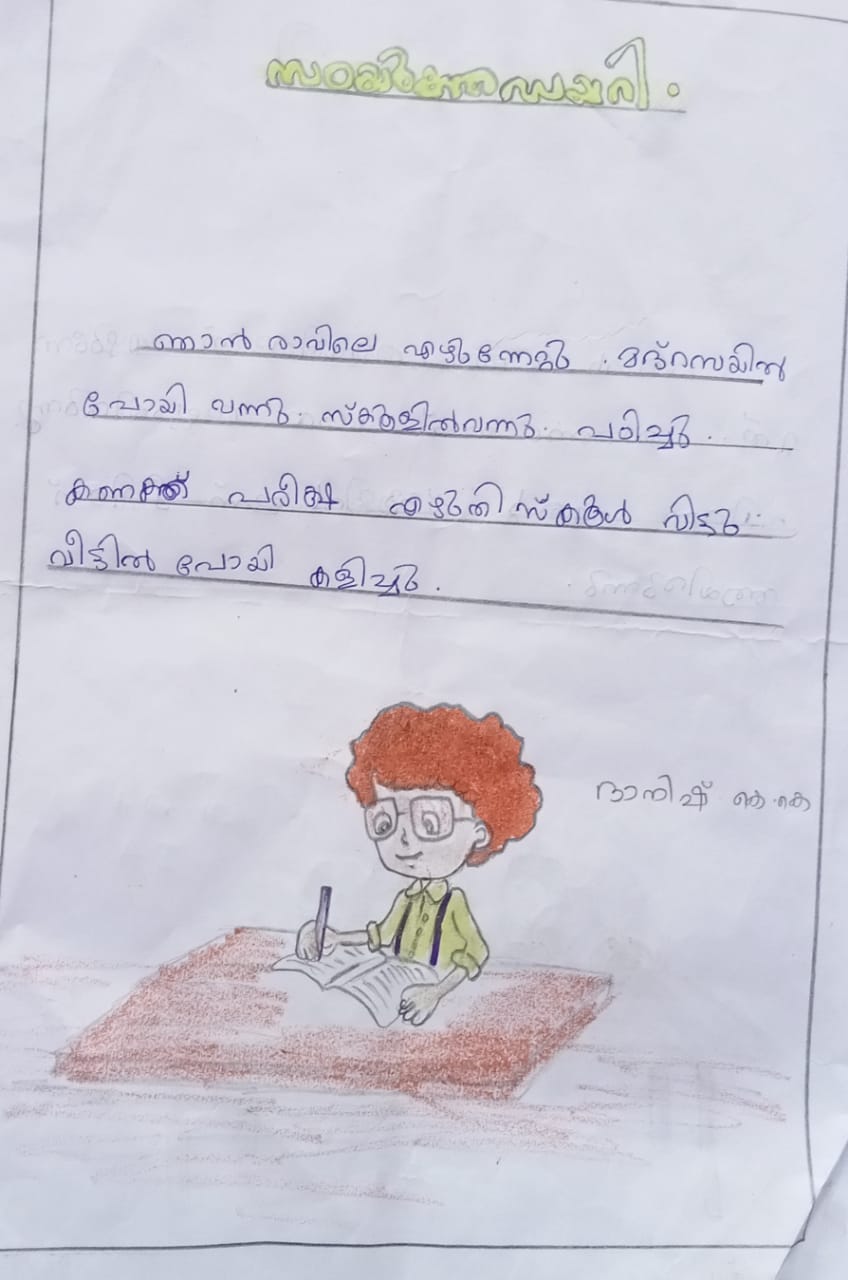 സംയുക്തഡയറി.
ഞാൻ രാവിലെ എഴുന്നേറ്റു. മദ്റസയിൽ
പോയി വന്നു. സ്കൂളിൽവന്നു. പഠിച്ചു.
കണക്ക് പരീക്ഷ എഴുതി സ്കൂൾ വിട്ടു.
വീട്ടിൽ പോയി കളിച്ചു.
ദാനിഷ് കെ.കെ